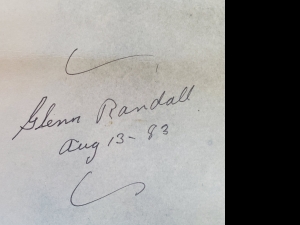 Glenn Randall
Aug 13-83